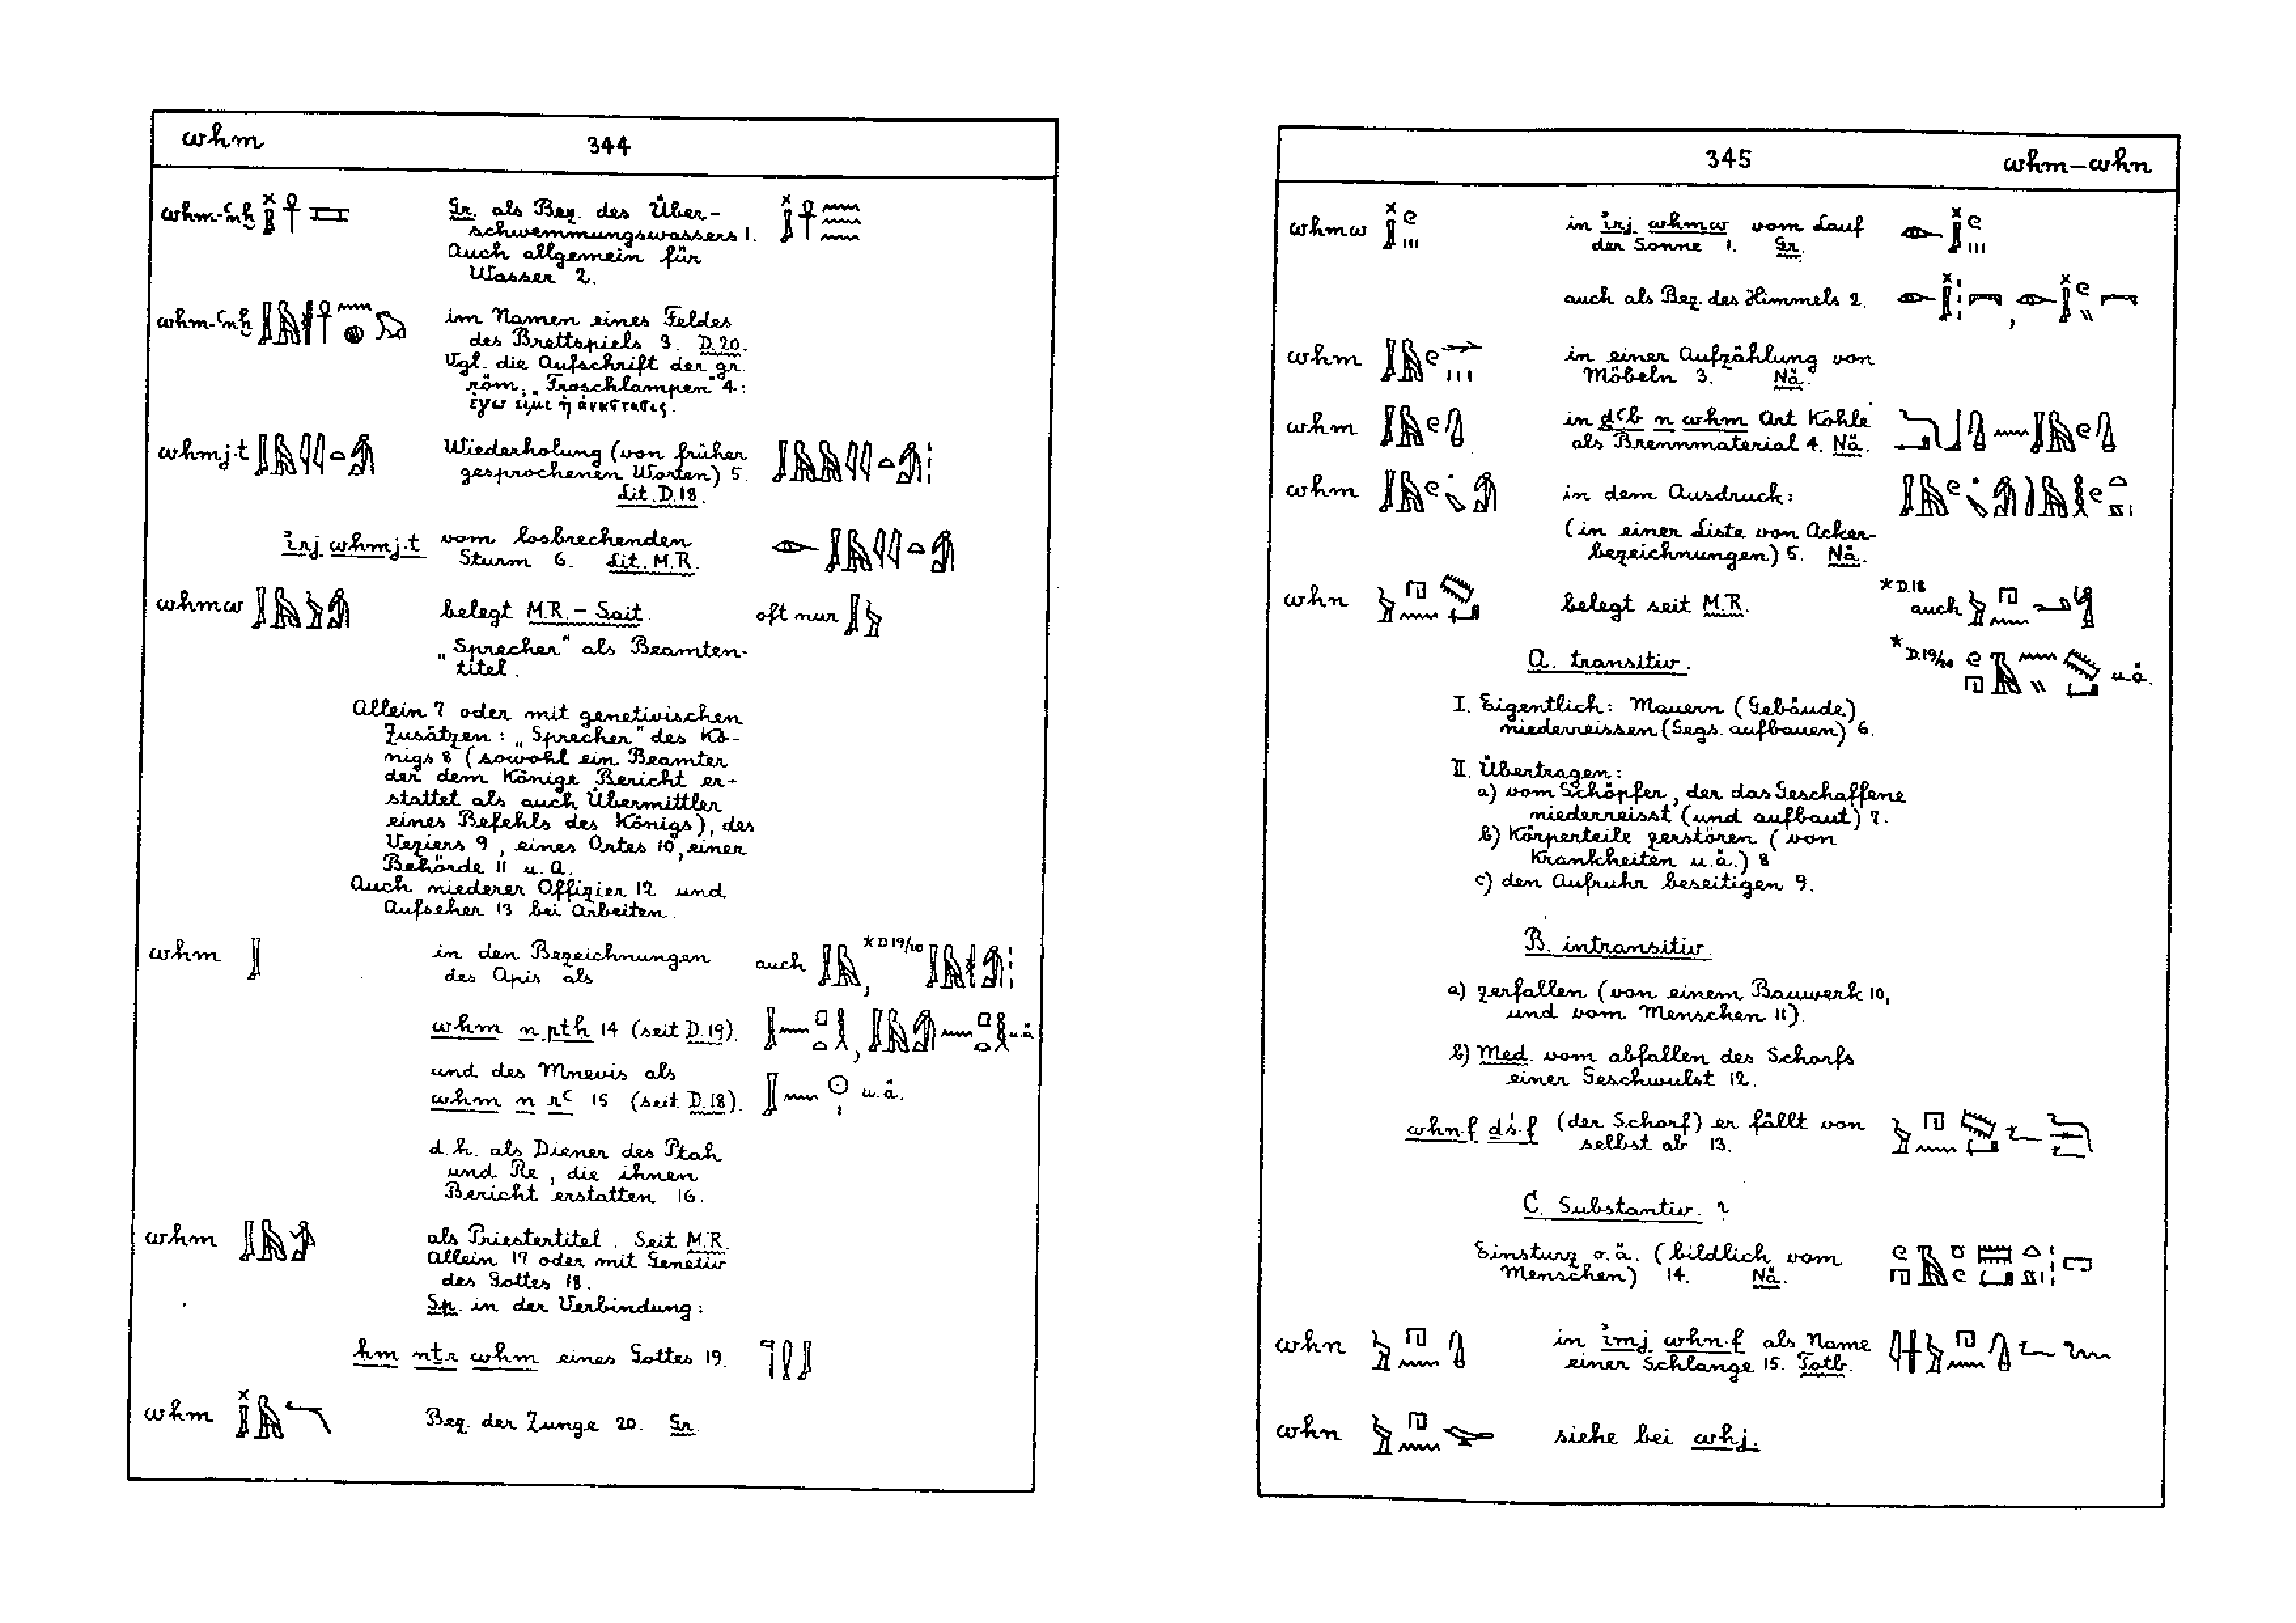 whm 344
whm-ꜥnḫ Gr. als Bez. des Über-
schwemmungswassers 1.
Auch allgemein für
Wasser 2.
whm-ꜥnḫ im Namen eines Feldes
des Brettspiels 3. D.20.
Vgl. die Aufschrift der gr.
röm. „Froschlampen" 4:
ἐγω εἰμι ἡ ἀναστασις.
whmj.t Wiederholung (von früher
gesprochenen Worten) 5.
Lit. D.18.
irj whmj.t vom losbrechenden
Sturm 6. Lit. M.R.
whmw belegt M.R. – Sait. oft nur
„Sprecher" als Beamten-
titel.
Allein 7 oder mit genetivischen
Zusätzen: „Sprecher" des Kö-
nigs 8 (sowohl ein Beamter
der dem Könige Bericht er-
stattet als auch Übermittler
eines Befehls des Königs), des
Veziers 9, eines Ortes 10, einer
Behörde 11 u. a.
Auch niederer Offizier 12 und
Aufseher 13 bei Arbeiten.
whm in den Bezeichnungen auch , *D19/20
des Apis als
whm n ptḥ 14 (seit D.19). , u.ä.
und des Mnevis als
whm n rꜥ 15 (seit D.18). u.ä.
d.h. als Diener des Ptah
und Re, die ihnen
Bericht erstatten 16.
whm als Priestertitel. Seit M.R.
Allein 17 oder mit Genetiv
des Gottes 18.
Sp. in der Verbindung:
ḥm nṯr whm eines Gottes 19.
whm Bez. der Zunge 20. Gr.
345 whm–whn
whmw in irj whmw vom Lauf
der Sonne 1. Gr.
auch als Bez. des Himmels 2. ,
whm in einer Aufzählung von
Möbeln 3. Nä.
whm in ḏꜥb n whm Art Kohle
als Brennmaterial 4. Nä.
whm in dem Ausdruck:
(in einer Liste von Acker-
bezeichnungen) 5. Nä.
whn belegt seit M.R. *D.18 auch
A. transitiv. *D.19/20 u.ä.
I. Eigentlich: Mauern (Gebäude)
niederreissen (Gegs. aufbauen) 6.
II. Übertragen:
a) vom Schöpfer, der das Geschaffene
niederreisst (und aufbaut) 7.
b) Körperteile zerstören (von
Krankheiten u.ä.) 8
c) den Aufruhr beseitigen 9.
B. intransitiv.
a) zerfallen (von einem Bauwerk 10,
und vom Menschen 11).
b) Med. vom abfallen des Schorfs
einer Geschwulst 12.
whn.f ḏś.f (der Schorf) er fällt von
selbst ab 13.
C. Substantiv. ?
Einsturz o.ä. (bildlich vom
Menschen) 14. Nä.
whn in imj whn.f als Name
einer Schlange 15. Totb.
whn siehe bei whj.